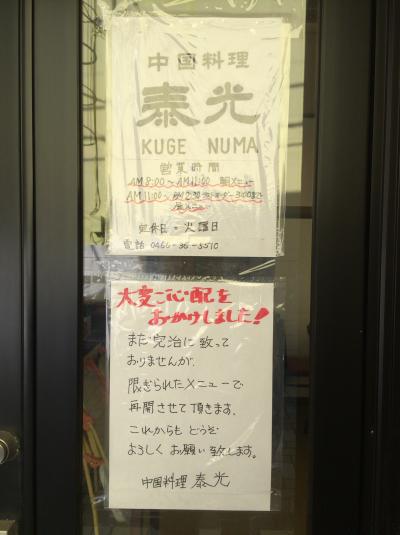 中国料理
泰光
KUGE NUMA
営業時間
AM 8:00~AM11:00 朝メニュー
AM 11:00~
定休日・火曜日
電話 0466-36-5510
大変ご心配を
おかけしました!
まだ完治に致って
おりませんが、
限ぎられたメニューで
再開させて頂きます。
これからも どうぞ
よろしく お願い致します。
中国料理 泰光